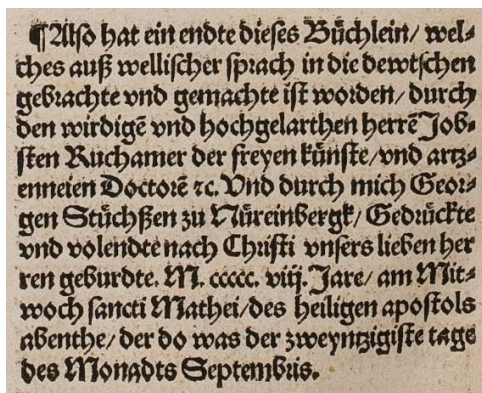 ¶ Also hat ein endte dieses Büchlein/ wel⸗
ches auß wellischer sprach in die dewtschen
gebrachte vnd gemachte ist worden/ durch
den wirdigē vnd hochgelarthen herrē Job⸗
sten Ruchamer der freyen künste/ vnd artz⸗
enneien Doctorē ꝛc. Vnd durch mich Geor⸗
gen Stüchßen zu Nüreinbergk/ Gedrückte
vnd volendte nach Christi vnsers lieben her
ren geburdte. M. ccccc. viij. Jare/ am Mit⸗
woch sancti Mathei/ des heiligen apostols
abenthe/ der do was der zweyntzigiste tage
des Monadts Septembris.